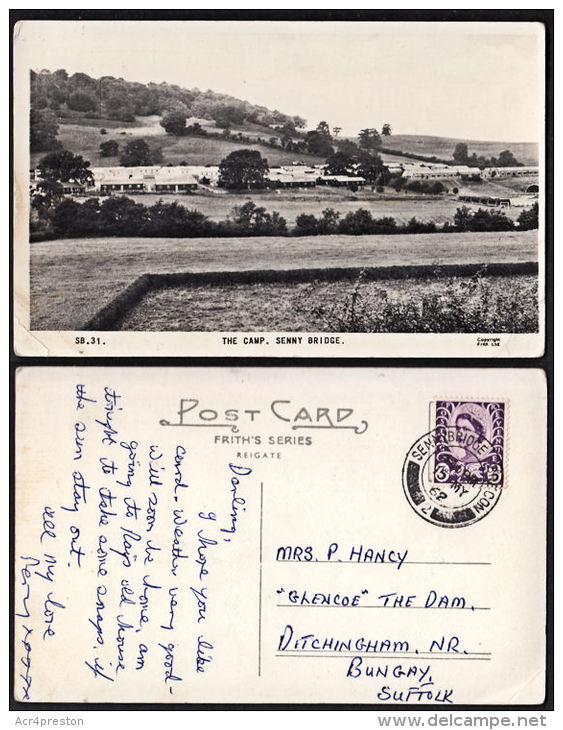 SB.31.
THE CAMP. SENNY BRIDGE.
Copyright
Frith Ltd
POST CARD
FRITH'S SERIES
REIGATE
SENNYBRIDGE BRECON
MY
62
2
3D
MRS. P. HANCY
"GLENCOE" THE DAM.
DITCHINGHAM, NR.
BUNGAY,
SUFFOLK
Darling,
I hope you like
card. Weather very good-
will soon be home, am
going to Ray's old house
tonight to take some snaps, if
the sun stay out.
all my love
Percy xooxx
Acr4preston
© delcampe.net